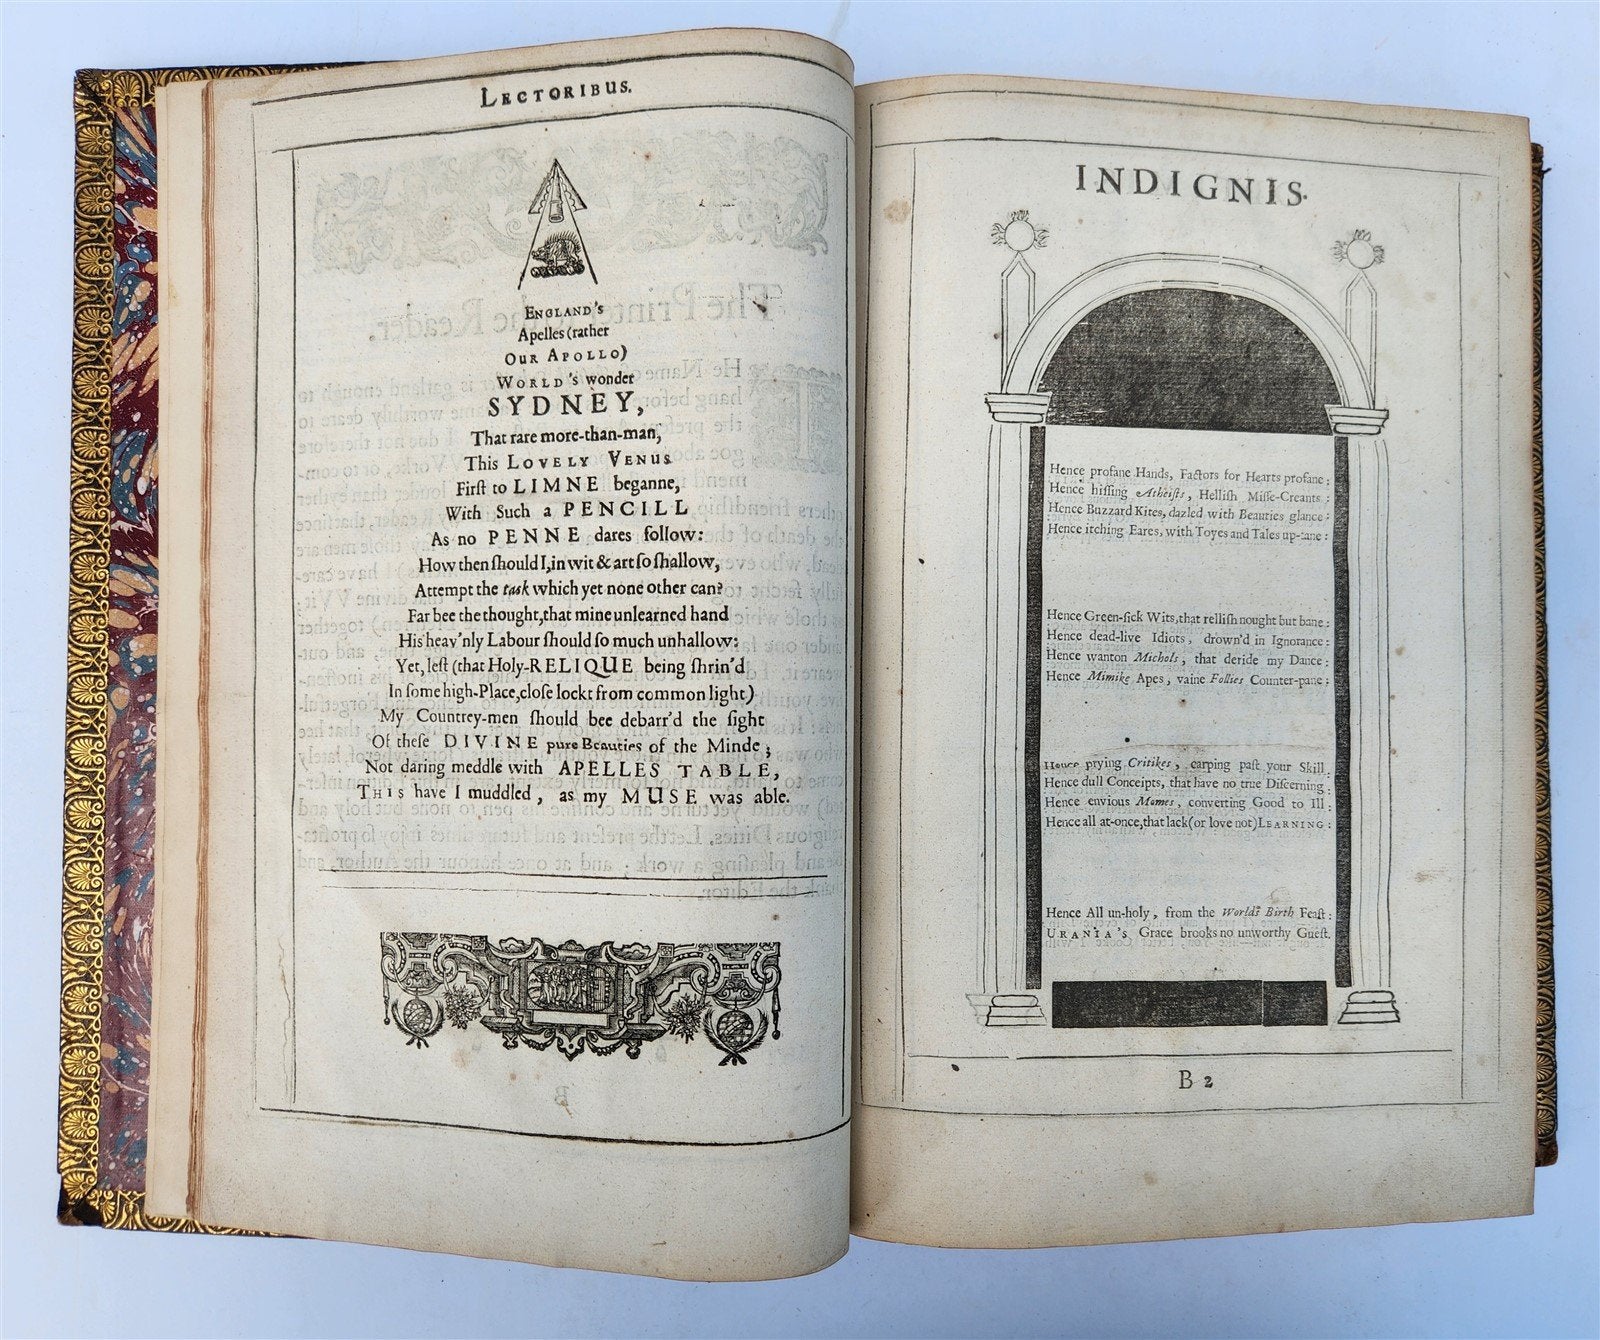 LECTORIBUS.
ENGLAND's
Apelles (rather
OUR APOLLO)
WORLD's wonder
SYDNEY,
That rare more-than-man,
This LOVELY VENUS
Firſt to LIMNE beganne,
With Such a PENCILL
As no PENNE dares follow:
How then ſhould I, in wit & art ſo ſhallow,
Attempt the task which yet none other can?
Far bee the thought, that mine unlearned hand
His heav'nly Labour ſhould ſo much unhallow:
Yet, leſt (that Holy-RELIQUE being ſhrin'd
In ſome high-Place, cloſe lockt from common light)
My Countrey-men ſhould bee debarr'd the ſight
Of theſe DIVINE pure Beauties of the Minde;
Not daring meddle with APELLES TABLE,
THIS have I muddled, as my MUSE was able.
INDIGNIS.
Hence profane Hands, Factors for Hearts profane:
Hence hiſſing Atheiſts, Helliſh Miſſe-Creants:
Hence Buzzard Kites, dazled with Beauties glance:
Hence itching Eares, with Toyes and Tales up-tane:
Hence Green-ſick Wits, that relliſh nought but bane:
Hence dead-live Idiots, drown'd in Ignorance:
Hence wanton Michols, that deride my Dance:
Hence Mimike Apes, vaine Follies Counter-pane:
Hence prying Critikes, carping paſt your Skill
Hence dull Conceipts, that have no true Diſcerning
Hence envious Momes, converting Good to Ill:
Hence all at-once, that lack (or love not) LEARNING:
Hence All un-holy, from the World's Birth Feaſt:
URANIA's Grace brooks no unworthy Gueſt.
B 2